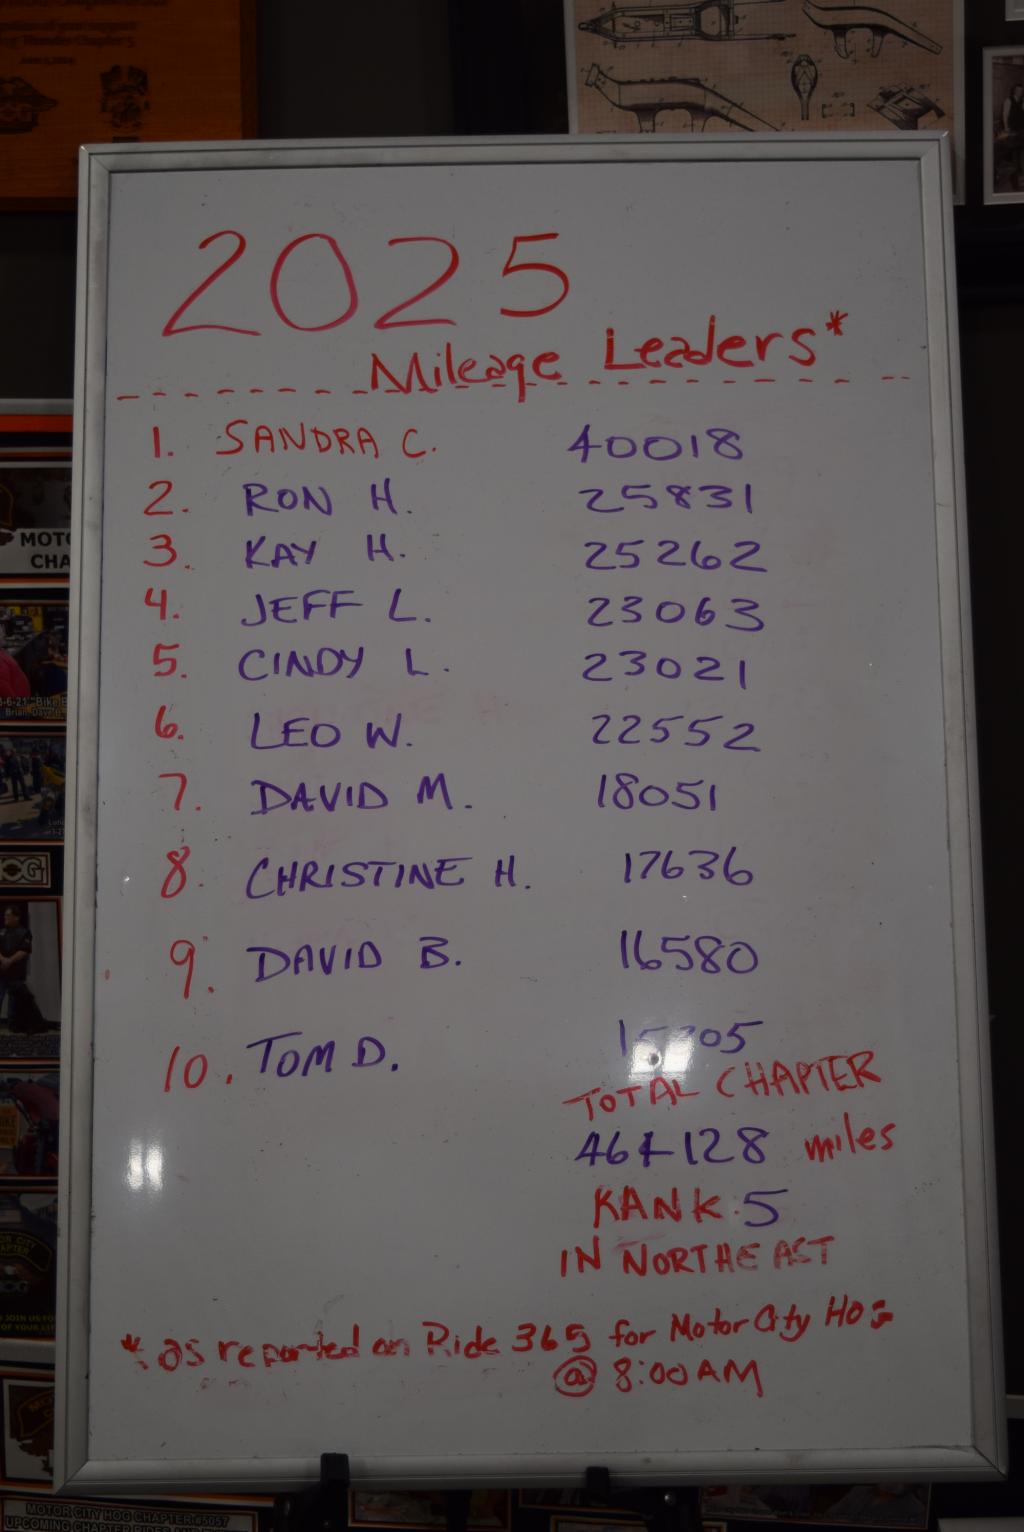 2025
Mileage Leaders*
1. SANDRA C. 40018
2. RON H. 25831
3. KAY H. 25262
4. JEFF L. 23063
5. CINDY L. 23021
6. LEO W. 22552
7. DAVID M. 18051
8. CHRISTINE H. 17636
9. DAVID B. 16580
10. TOM D.
TOTAL CHAPTER
miles
RANK 5
IN NORTHEAST
* as reported on Ride 365 for Motor City HOG
@ 8:00 AM
MOTOR CITY HOG CHAPTER #5057
UPCOMING CHAPTER RIDES AND